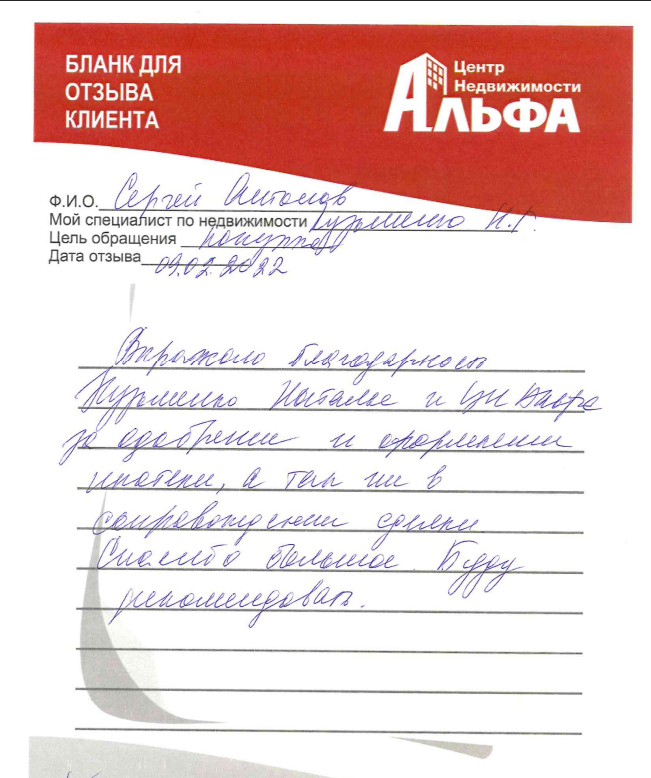 БЛАНК ДЛЯ
ОТЗЫВА
КЛИЕНТА
Центр
Недвижимости
АЛЬФА
Ф.И.О. Сергей Антонов
Мой специалист по недвижимости Кузьменко Н.Г.
Цель обращения покупка
Дата отзыва 09.02.2022
Выражаю благодарность
Кузьменко Наталье и ЦН Альфа
за одобрении и оформлении
ипотеки, а так же в
сопровождении сделки
Спасибо большое. Буду
рекомендовать.